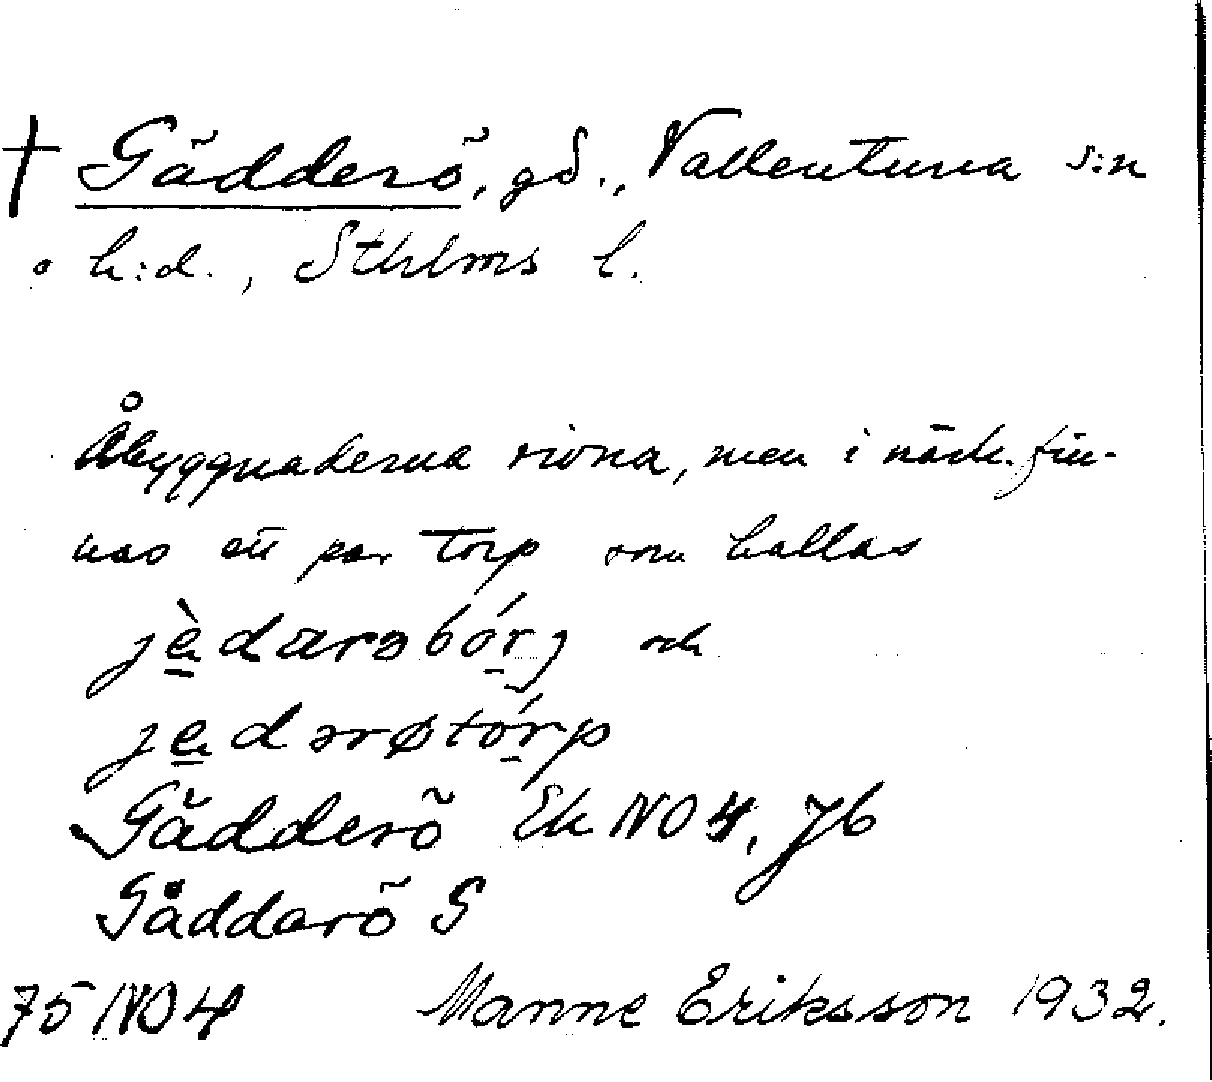 † Gädderö, gd., Vallentuna s:n
o h:d., Sthlms l.
Åbyggnaderna rivna, men i närh. fin-
nas ett par torp som kallas
jèdarsbórj och
jedərøtórp
Gädderö Ek NO 4, Jb
Gäddarö S
75 NO 4 Manne Eriksson 1932.